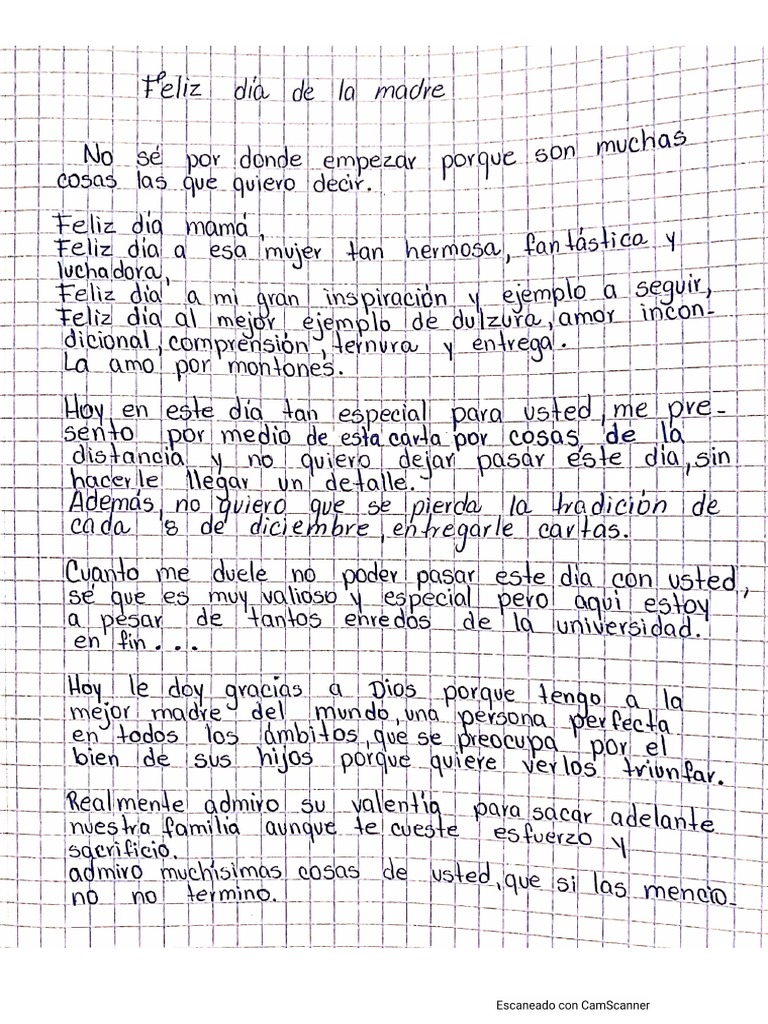 Feliz día de la madre
No sé por donde empezar porque son muchas
cosas las que quiero decir.
Feliz día mamá,
Feliz día a esa mujer tan hermosa, fantástica y
luchadora,
Feliz día a mi gran inspiración y ejemplo a seguir,
Feliz día al mejor ejemplo de dulzura, amor incon-
dicional, comprensión, ternura y entrega.
La amo por montones.
Hoy en este día tan especial para usted, me pre-
sento por medio de esta carta por cosas de la
distancia y no quiero dejar pasar éste día, sin
hacerle llegar un detalle.
Además, no quiero que se pierda la tradición de
cada 8 de diciembre, entregarle cartas.
Cuanto me duele no poder pasar este día con usted,
sé que es muy valioso y especial pero aquí estoy
a pesar de tantos enredos de la universidad.
en fin...
Hoy le doy gracias a Dios porque tengo a la
mejor madre del mundo, una persona perfecta
en todos los ámbitos, que se preocupa por el
bien de sus hijos porque quiere verlos triunfar.
Realmente admiro su valentía para sacar adelante
nuestra familia aunque te cueste esfuerzo y
sacrificio.
admiro muchísimas cosas de usted, que si las mencio-
no no termino.
Escaneado con CamScanner